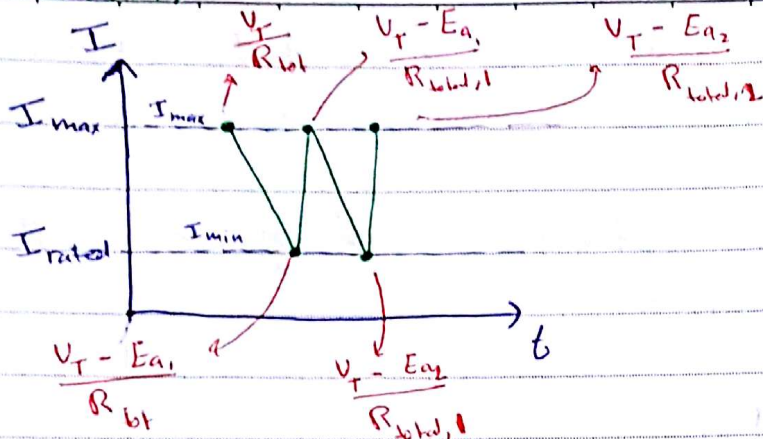 I
V_T / R_tot
V_T - Ea_1 / R_total,1
V_T - Ea_2 / R_total,2
I max
I max
I rated
I min
t
V_T - Ea_1 / R_tot
V_T - Ea_2 / R_total,1